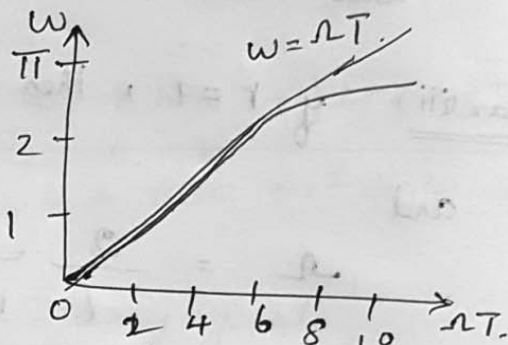 ω
π
2
1
ω = ΩT.
0 2 4 6 8 10 ΩT.